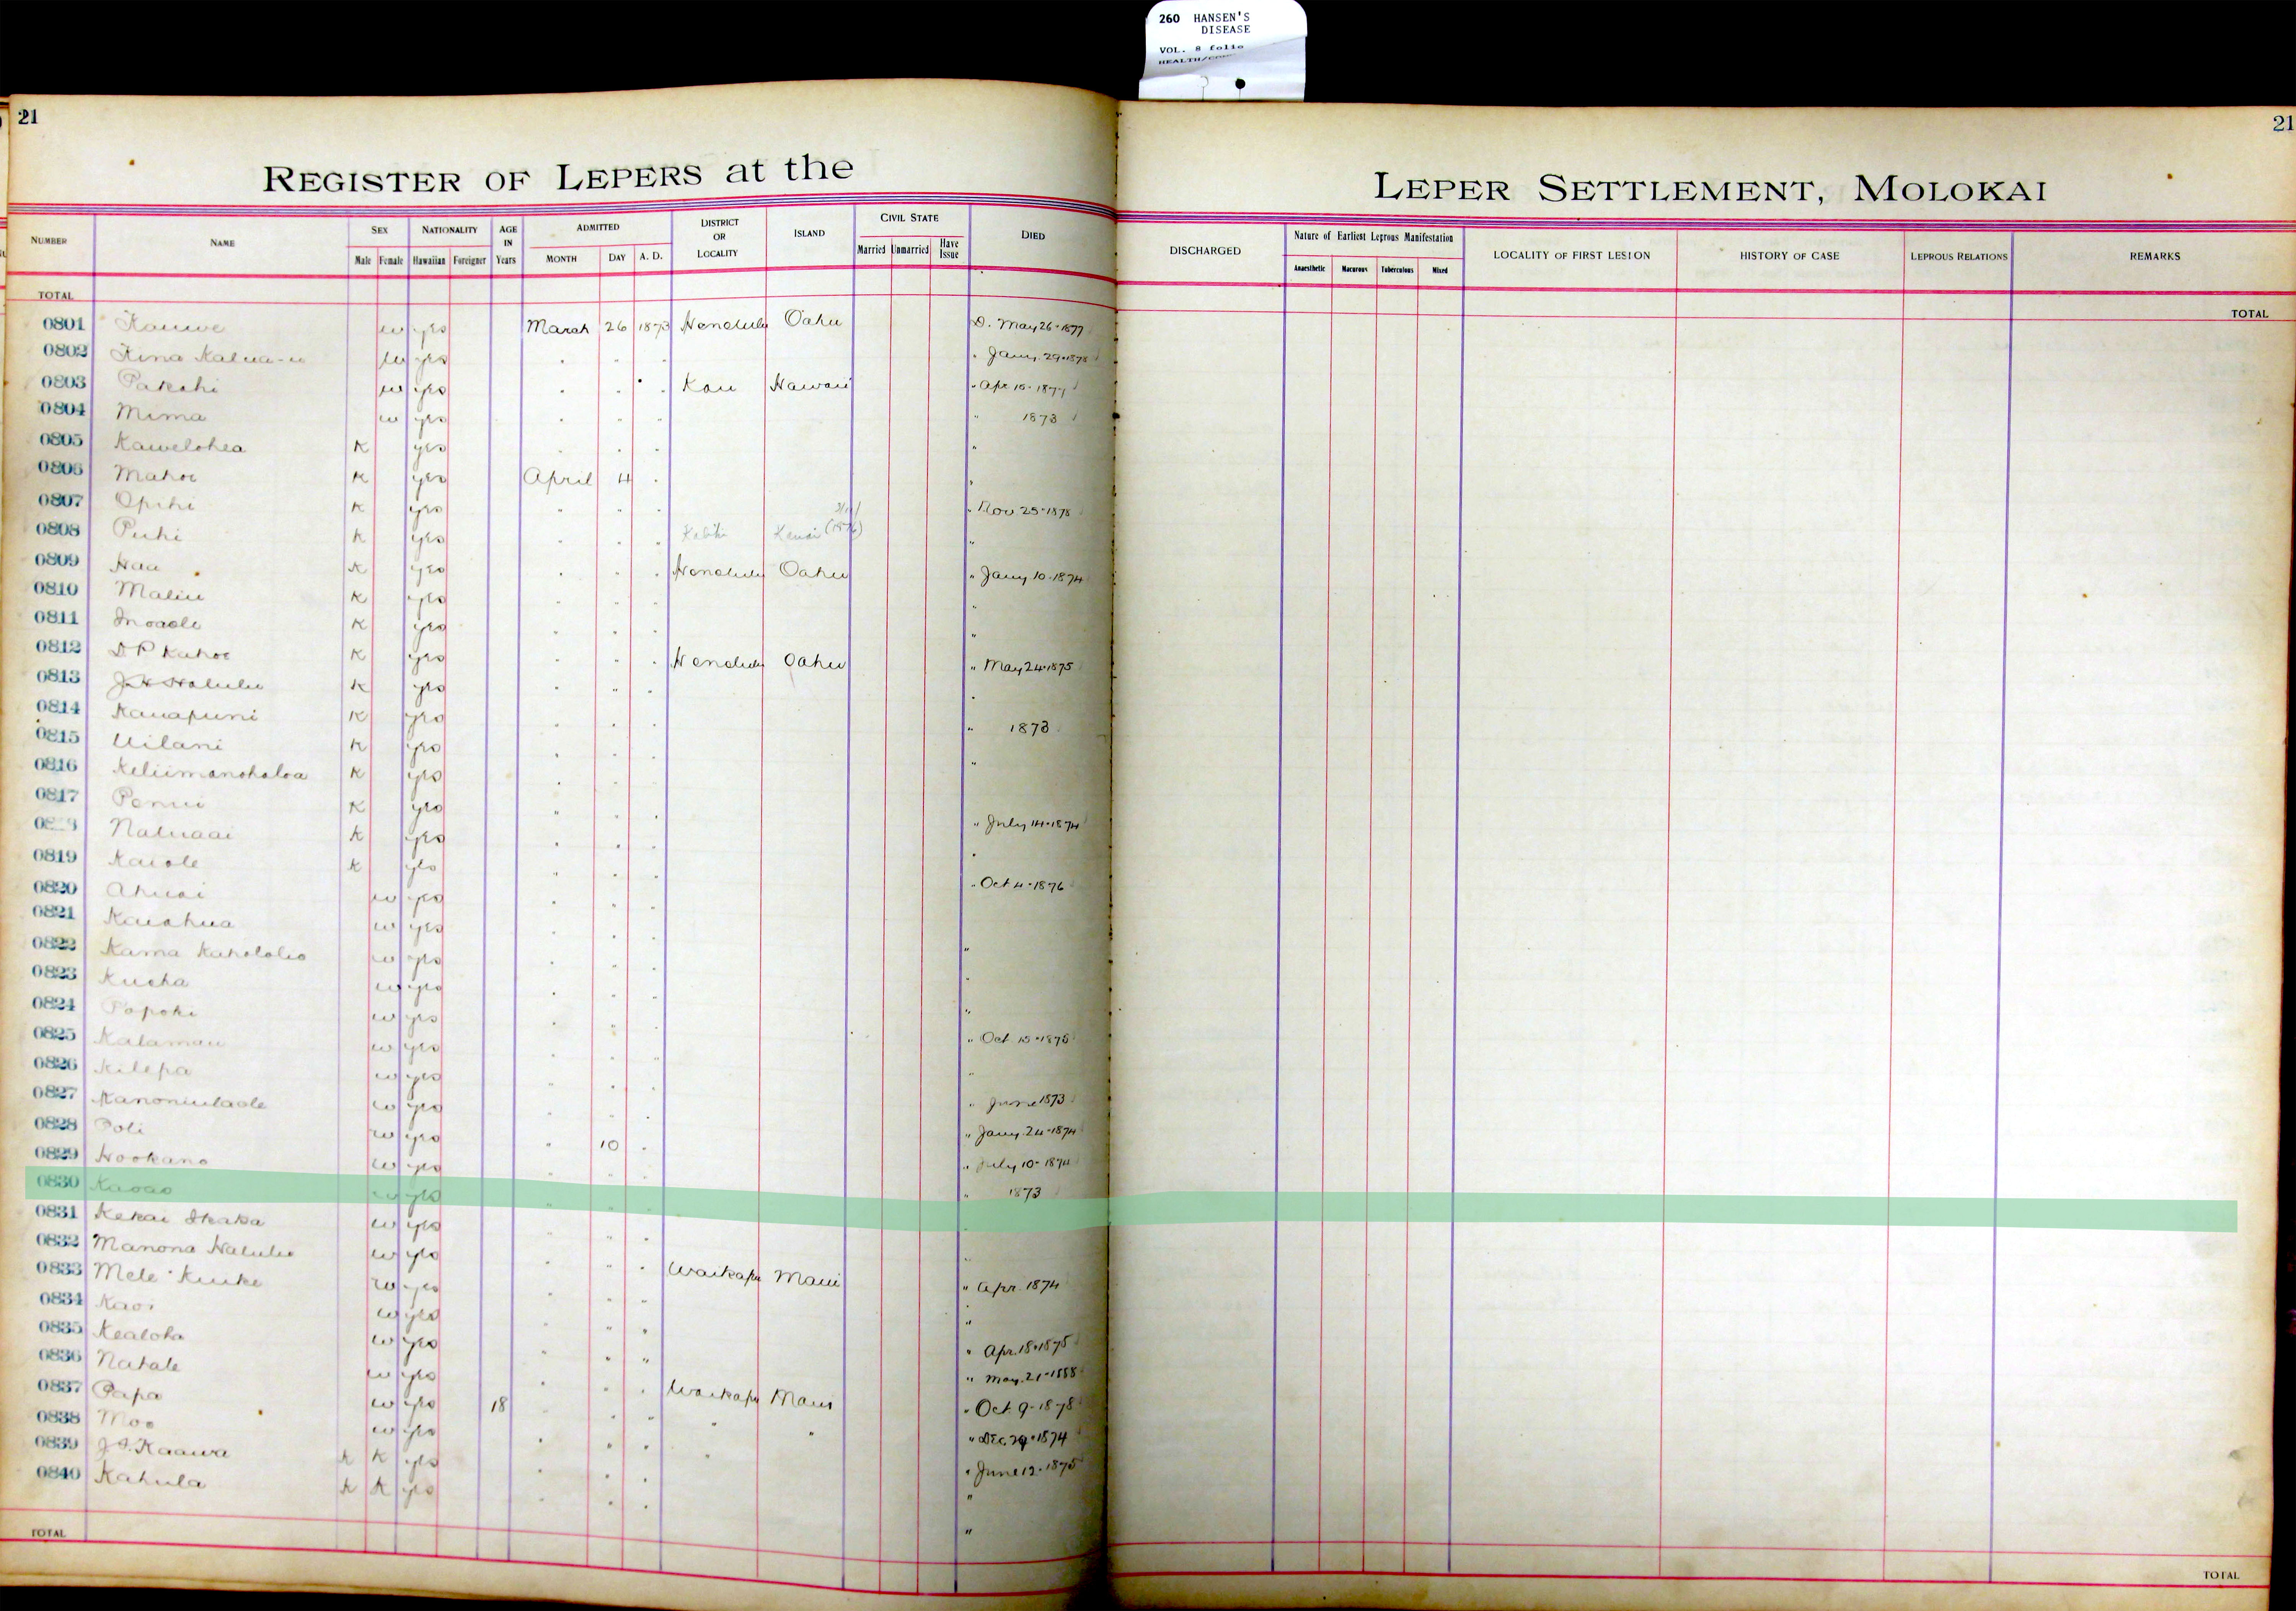 260 HANSEN'S
DISEASE
VOL. 8 folio
21
21
REGISTER OF LEPERS at the
LEPER SETTLEMENT, MOLOKAI
NUMBER NAME SEX Male Female NATIONALITY Hawaiian Foreigner AGE IN Years ADMITTED MONTH DAY A. D. DISTRICT OR LOCALITY ISLAND CIVIL STATE Married Unmarried Have Issue DIED
DISCHARGED Nature of Earliest Leprous Manifestation Anaesthetic Macurous Tuberculous Mixed LOCALITY OF FIRST LESION HISTORY OF CASE LEPROUS RELATIONS REMARKS
TOTAL
TOTAL
0801 Kauwe w yes March 26 1873 Honolulu Oahu D. May 26-1877
0802 w yes " " " " Jany. 29-1878
0803 Pakahi w yes " " " Kau Hawaii " Apr 16-1877
0804 Mima w yes " " " " 1873
0805 Kawelohea K yes " " " "
0806 Mahoe K yes April 4 " "
0807 Opihi K yes " " " " Nov 25-1878
0808 Puhi K yes " " " Kauai (1876) "
0809 Hau K yes " " " Honolulu Oahu " Jany 10-1874
0810 Maliu K yes " " " "
0811 K yes " " " "
0812 D P Kahoe K yes " " " Honolulu Oahu " May 24-1875
0813 K yes " " " "
0814 Kauapuni K yes " " " " 1873
0815 Uilani K yes " " " "
0816 Keliimanohaloa K yes " " "
0817 Penui K yes " " " " July 14-1874
Naluaai K yes " " " "
0819 Kaiole K yes " " " " Oct 4-1876
0820 Ahuai w yes " " "
0821 Kaiahua w yes " " " "
0822 Kama Kaholokio w yes " " " "
0823 Kueha w yes " " " "
0824 Popoki w yes " " " " Oct. 15-1875
0825 Kalamau w yes " " " "
0826 Kilepa w yes " " " " June 1873
0827 Kanoniulaole w yes " " " " Jany. 24-1874
0828 Poli w yes " 10 " " July 10-1874
0829 Hookano w yes " " " " 1873
0830 Kaoao w yes " " "
0831 Kekai Ikaka w yes " " " "
0832 Manona Halulu w yes " " " Waikapu Maui " Apr. 1874
0833 Mele Kuike w yes " " " "
0834 Kaoi w yes " " " " Apr. 18-1875
0835 Kealoha w yes " " " " May. 21-1888
0836 Nahale w yes " " " Waikapu Maui " Oct. 9-1878
0837 Papa w yes 18 " " " " " " Dec. 29-1874
0838 Moo w yes " " " " " June 12-1875
0839 Kaawa K K yes " " " "
0840 Kahula K K yes " " " "
TOTAL
TOTAL